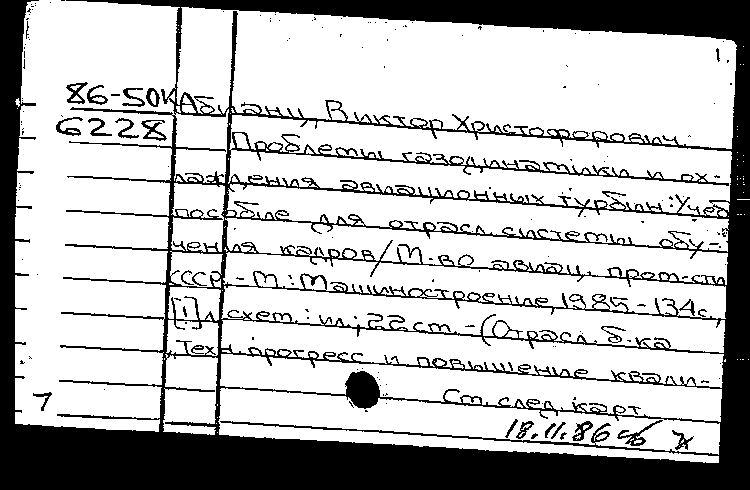 1.
86-50К Абианц, Виктор Христофорович.
6228 Проблемы газодинамики и ох-
лаждения авиационных турбин: Учеб.
пособие для отрасл. системы обу-
чения кадров/М-во авиац. пром-сти
СССР. - М.: Машиностроение, 1985 - 134 с.,
[1] л. схем.: ил.; 22 см. - (Отрасл. б-ка
"Техн. прогресс и повышение квали-
См. след. карт.
7
18.11.86